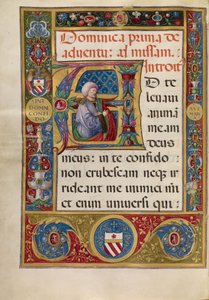 Dominica prima de
adventu: ad missam.
Introit
AD te
levavi
animā
meam
deus
meus: in te confido
non erubescam neqz ir
rideant me inimici mi
et enim universi qui: